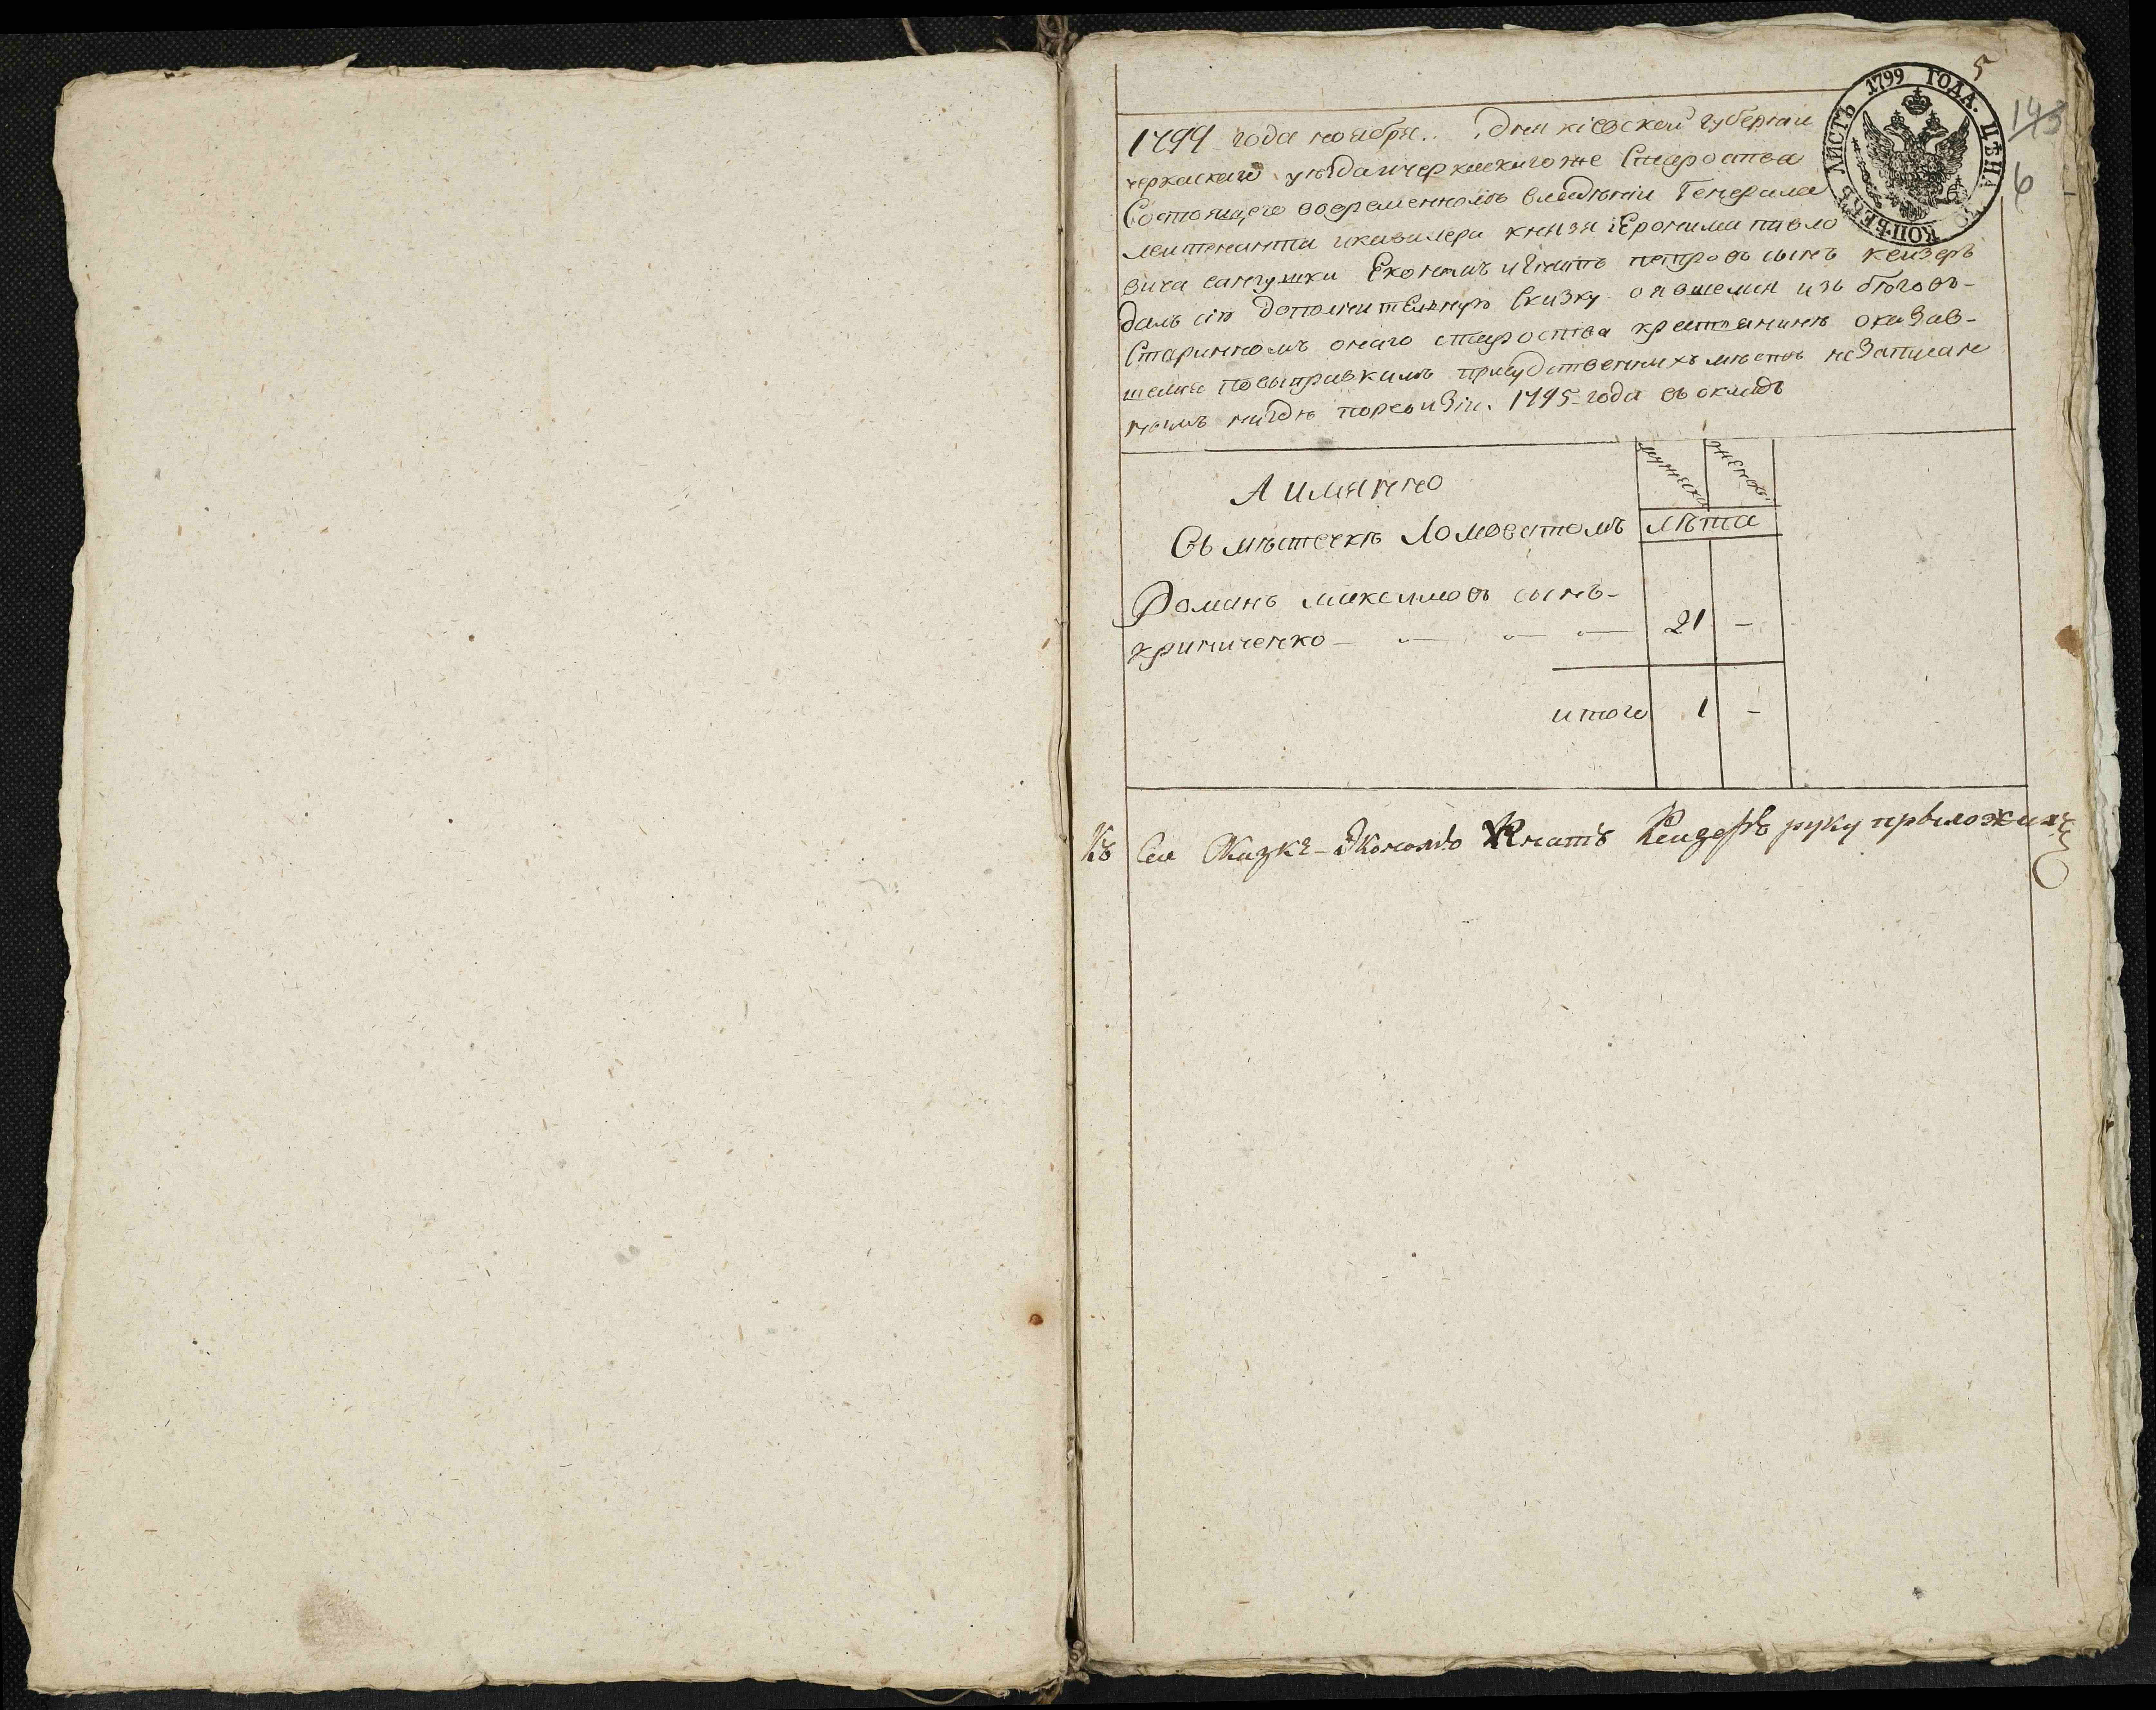 5
ЛИСТЪ 1799 ГОДА. ЦѢНА КОПѢЕКЪ
143
6
1799 года ноября .. дня кіевской губерніи
черкаскаго уѣзда ичеркаскагоже Староства
Состоящего вовременномъ владѣніи Генерала
леитенанта икавалера князя іЕронима павло
вича сангушки Економъ игнатъ петровъ сынъ кеизеръ
далъ сію дополнительную Сказку оявшемся изъ беговъ-
Старинномъ онаго староства крестянинѣ оказав-
шемся повыправкамъ присудственныхъ мѣстъ не Записан
нымъ нигдѣ поревизіи. 1795-года въ окладъ
мужеска женска
А имянно
лѣта
Въ мѣстечкѣ Ломоватомъ
Романъ максимовъ сынъ-
криниченко — 21 —
итого 1 —
Къ Сеи Сказкѣ Экономъ Кнатъ Кеизеръ руку прыложилъ